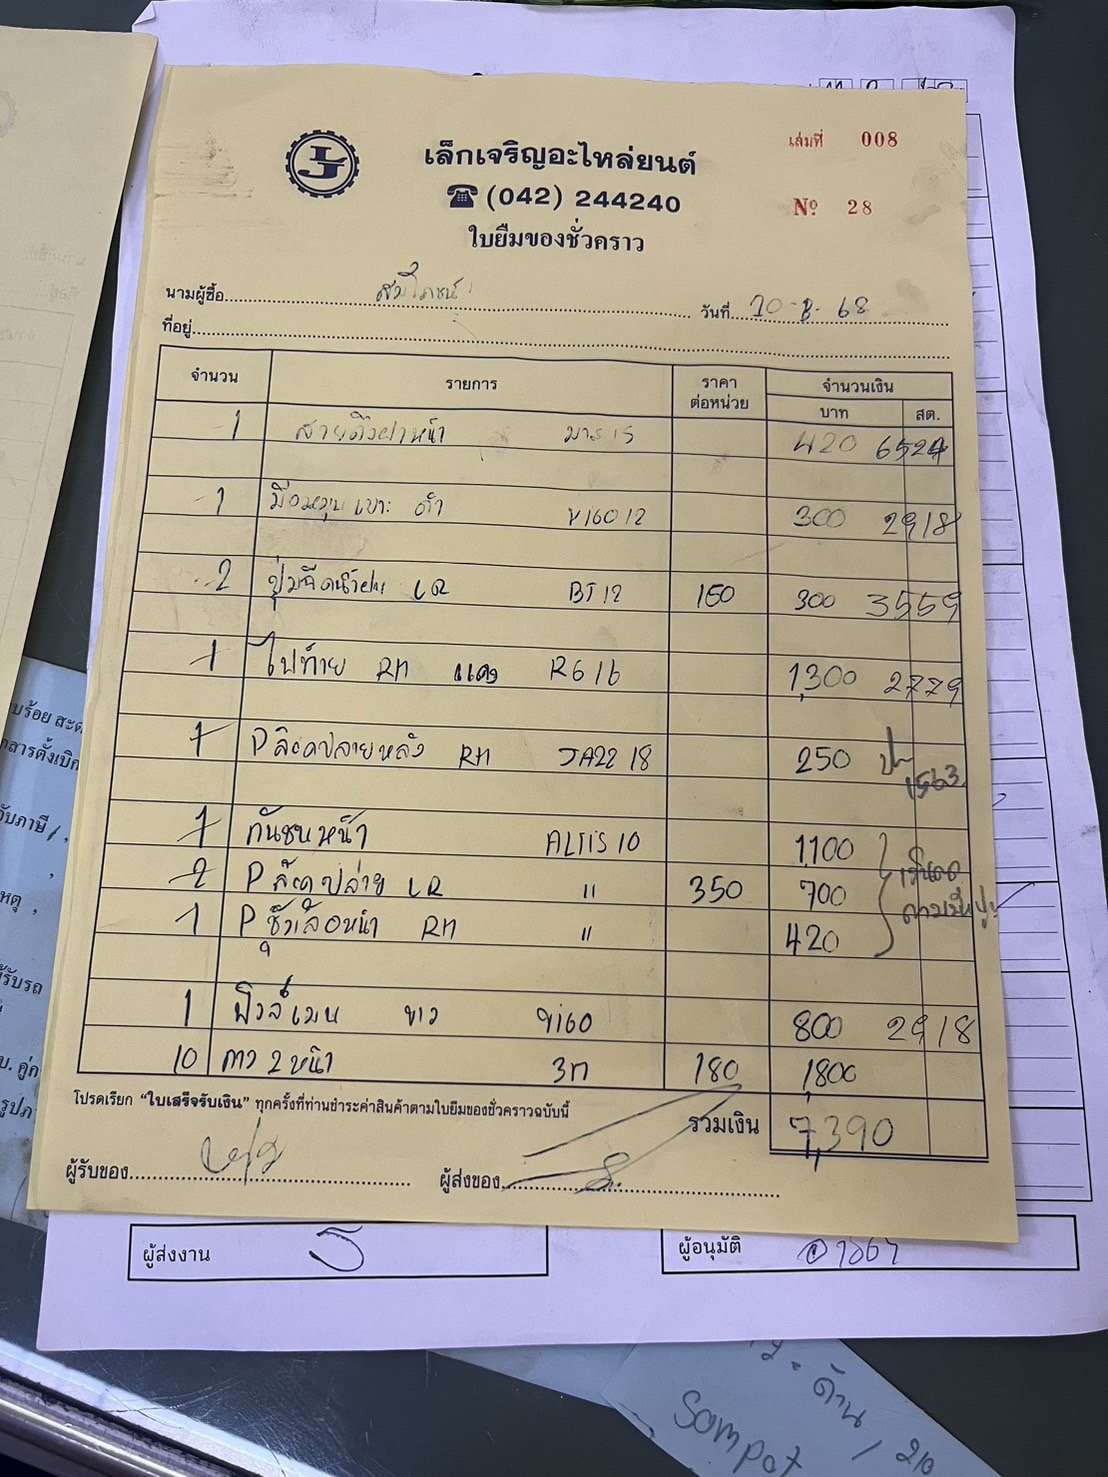 เล่มที่ 008
เล็กเจริญอะไหล่ยนต์
(042) 244240
Nº 28
ใบยืมของชั่วคราว
นามผู้ซื้อ สมโภชน์ วันที่ 20-8-68
ที่อยู่
จำนวน รายการ ราคาต่อหน่วย จำนวนเงิน
บาท สต.
1 สายดึงฝาหน้า มาร 15 420 6524
1 มือหมุนเบาะ ดำ ข160 12 300 2918
2 ปุ่มฉีดน้ำฝน LR BT12 150 300 3559
1 ไฟท้าย RH แดง RG16 1,300 2779
1 P ล๊อคปลายหลัง RH JA22 18 250
1563
1 กันชนหน้า ALTIS 10 1,100
2 P ล๊อคปลาย LR " 350 700
1 P ซุ้มล้อหน้า RH " 420
1 ฟิวส์เมน ขาว ข160 800 2918
10 กาว 2 หน้า 3ก 180 1,800
โปรดเรียก "ใบเสร็จรับเงิน" ทุกครั้งที่ท่านชำระค่าสินค้าตามใบยืมของชั่วคราวฉบับนี้
รวมเงิน 7,390
ผู้รับของ ผู้ส่งของ
ผู้ส่งงาน ผู้อนุมัติ
ด้าน
Sompot